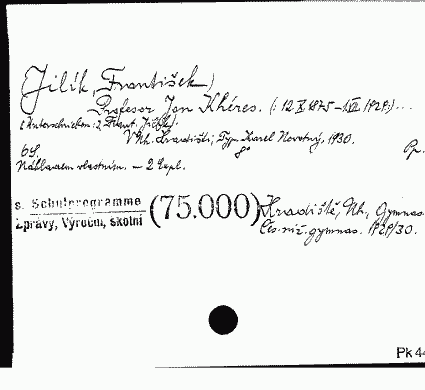 Jilík, František
Profesor Jan Khéres. (: 12.X.1875 – 1.VII.1929:)...
V Uh. Hradišti, Typ. Karel Novotný, 1930.
8°
6 S. Pp.
Nákladem vlastním. – 2 Expl.
s. Schulprogramme
Zprávy, Výroční, školní
(75.000)
Hradiště, Uh., Gymnas.
Čes. niž. gymnas. 1929/30.
Pk 44